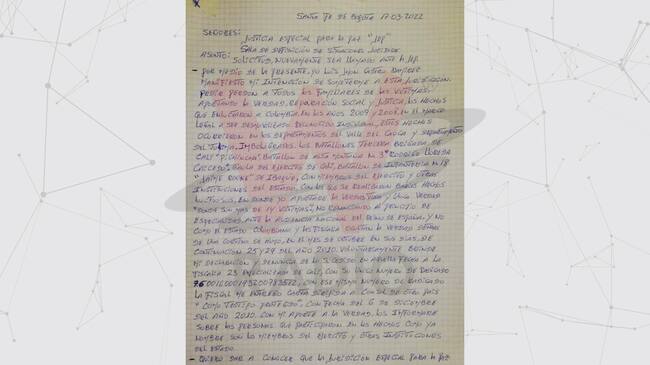 SANTA FE DE BOGOTA 17-03-2022
SEÑORES:
JUSTICIA ESPECIAL PARA LA PAZ "JEP"
SALA DE DEFINICIÓN DE SITUACIONES JURIDICAS
ASUNTO: SOLICITUD, NUEVAMENTE SER LLAMADO ANTE LA JEP.
- POR MEDIO DE LA PRESENTE, YO LUIS JHON CASTRO RAMIREZ
MANIFIESTO MI INTENCION DE SOMETERME A ESTA JURISDICCION
PEDIR PERDON A TODOS LOS FAMILIARES DE LAS VICTIMAS,
APORTANDO LA VERDAD, REPARACION SOCIAL Y JUSTICIA, LOS HECHOS
QUE ENLUTARON A COLOMBIA, EN LOS AÑOS 2007 Y 2008, EN EL MARCO
LEGAL A SER DESMOVILIZADO ESTOS HECHOS
OCURRIERON EN LOS DEPARTAMENTOS DEL VALLE DEL CAUCA Y DEPARTAMENTO
DEL TOLIMA, LOS BATALLONES TERCERA BRIGADA DE
CALI "PICHINCHA", BATALLON DE ALTA MONTAÑA N. 3 "RODRIGO LLOREDA
CAICEDO", DEL EJERCITO DE CALI, BATALLON DE INFANTERIA N. 18
"JAIME ROOKE" DE IBAGUE, CON MIEMBROS DEL EJERCITO Y OTRAS
INSTITUCIONES DEL ESTADO, CON LOS QUE SE REALIZARON VARIOS HECHOS
LUCTUOSOS, EN DONDE YO APORTARE LA VERDAD
"DONDE SON MAS DE 14 VICTIMAS", NO RENUNCIANDO AL PRINCIPIO DE
ESPECIALIDAD, ANTE LA AUDIENCIA NACIONAL DEL REINO DE ESPAÑA, Y NO
COMO EL ESTADO COLOMBIANO Y LAS FISCALIA OCULTAN LA VERDAD
DE UNA CORTINA DE HUMO, EN EL MES DE OCTUBRE EN SUS DIAS, DE
CONTINUACION 25 Y 29 DEL AÑO 2020. VOLUNTARIAMENTE BRINDE
MI DECLARACION Y DENUNCIA DE LO SUCEDIDO EN AQUELLA FECHA A LA
FISCALIA 23 ESPECIALIZADA DE CALI, CON SU UNICO NUMERO DE RADICADO
CON ESE MISMO NUMERO DE RADICADO
LA FISCAL ME ENTREGO CARTA DIRIGIDA A CONSUL DE OTRO PAIS
"COMO TESTIGO PROTEGIDO", CON FECHA DEL 6 DE DICIEMBRE
DEL AÑO 2020. CON MI APORTE A LA VERDAD, LOS INFORMARE
SOBRE LAS PERSONAS QUE PARTICIPARON EN LOS HECHOS COMO YA
NOMBRE SON LOS MIEMBROS DEL EJERCITO Y OTRAS INSTITUCIONES
DEL ESTADO.
- QUIERO DAR A CONOCER QUE LA JURISDICCION ESPECIAL PARA LA PAZ